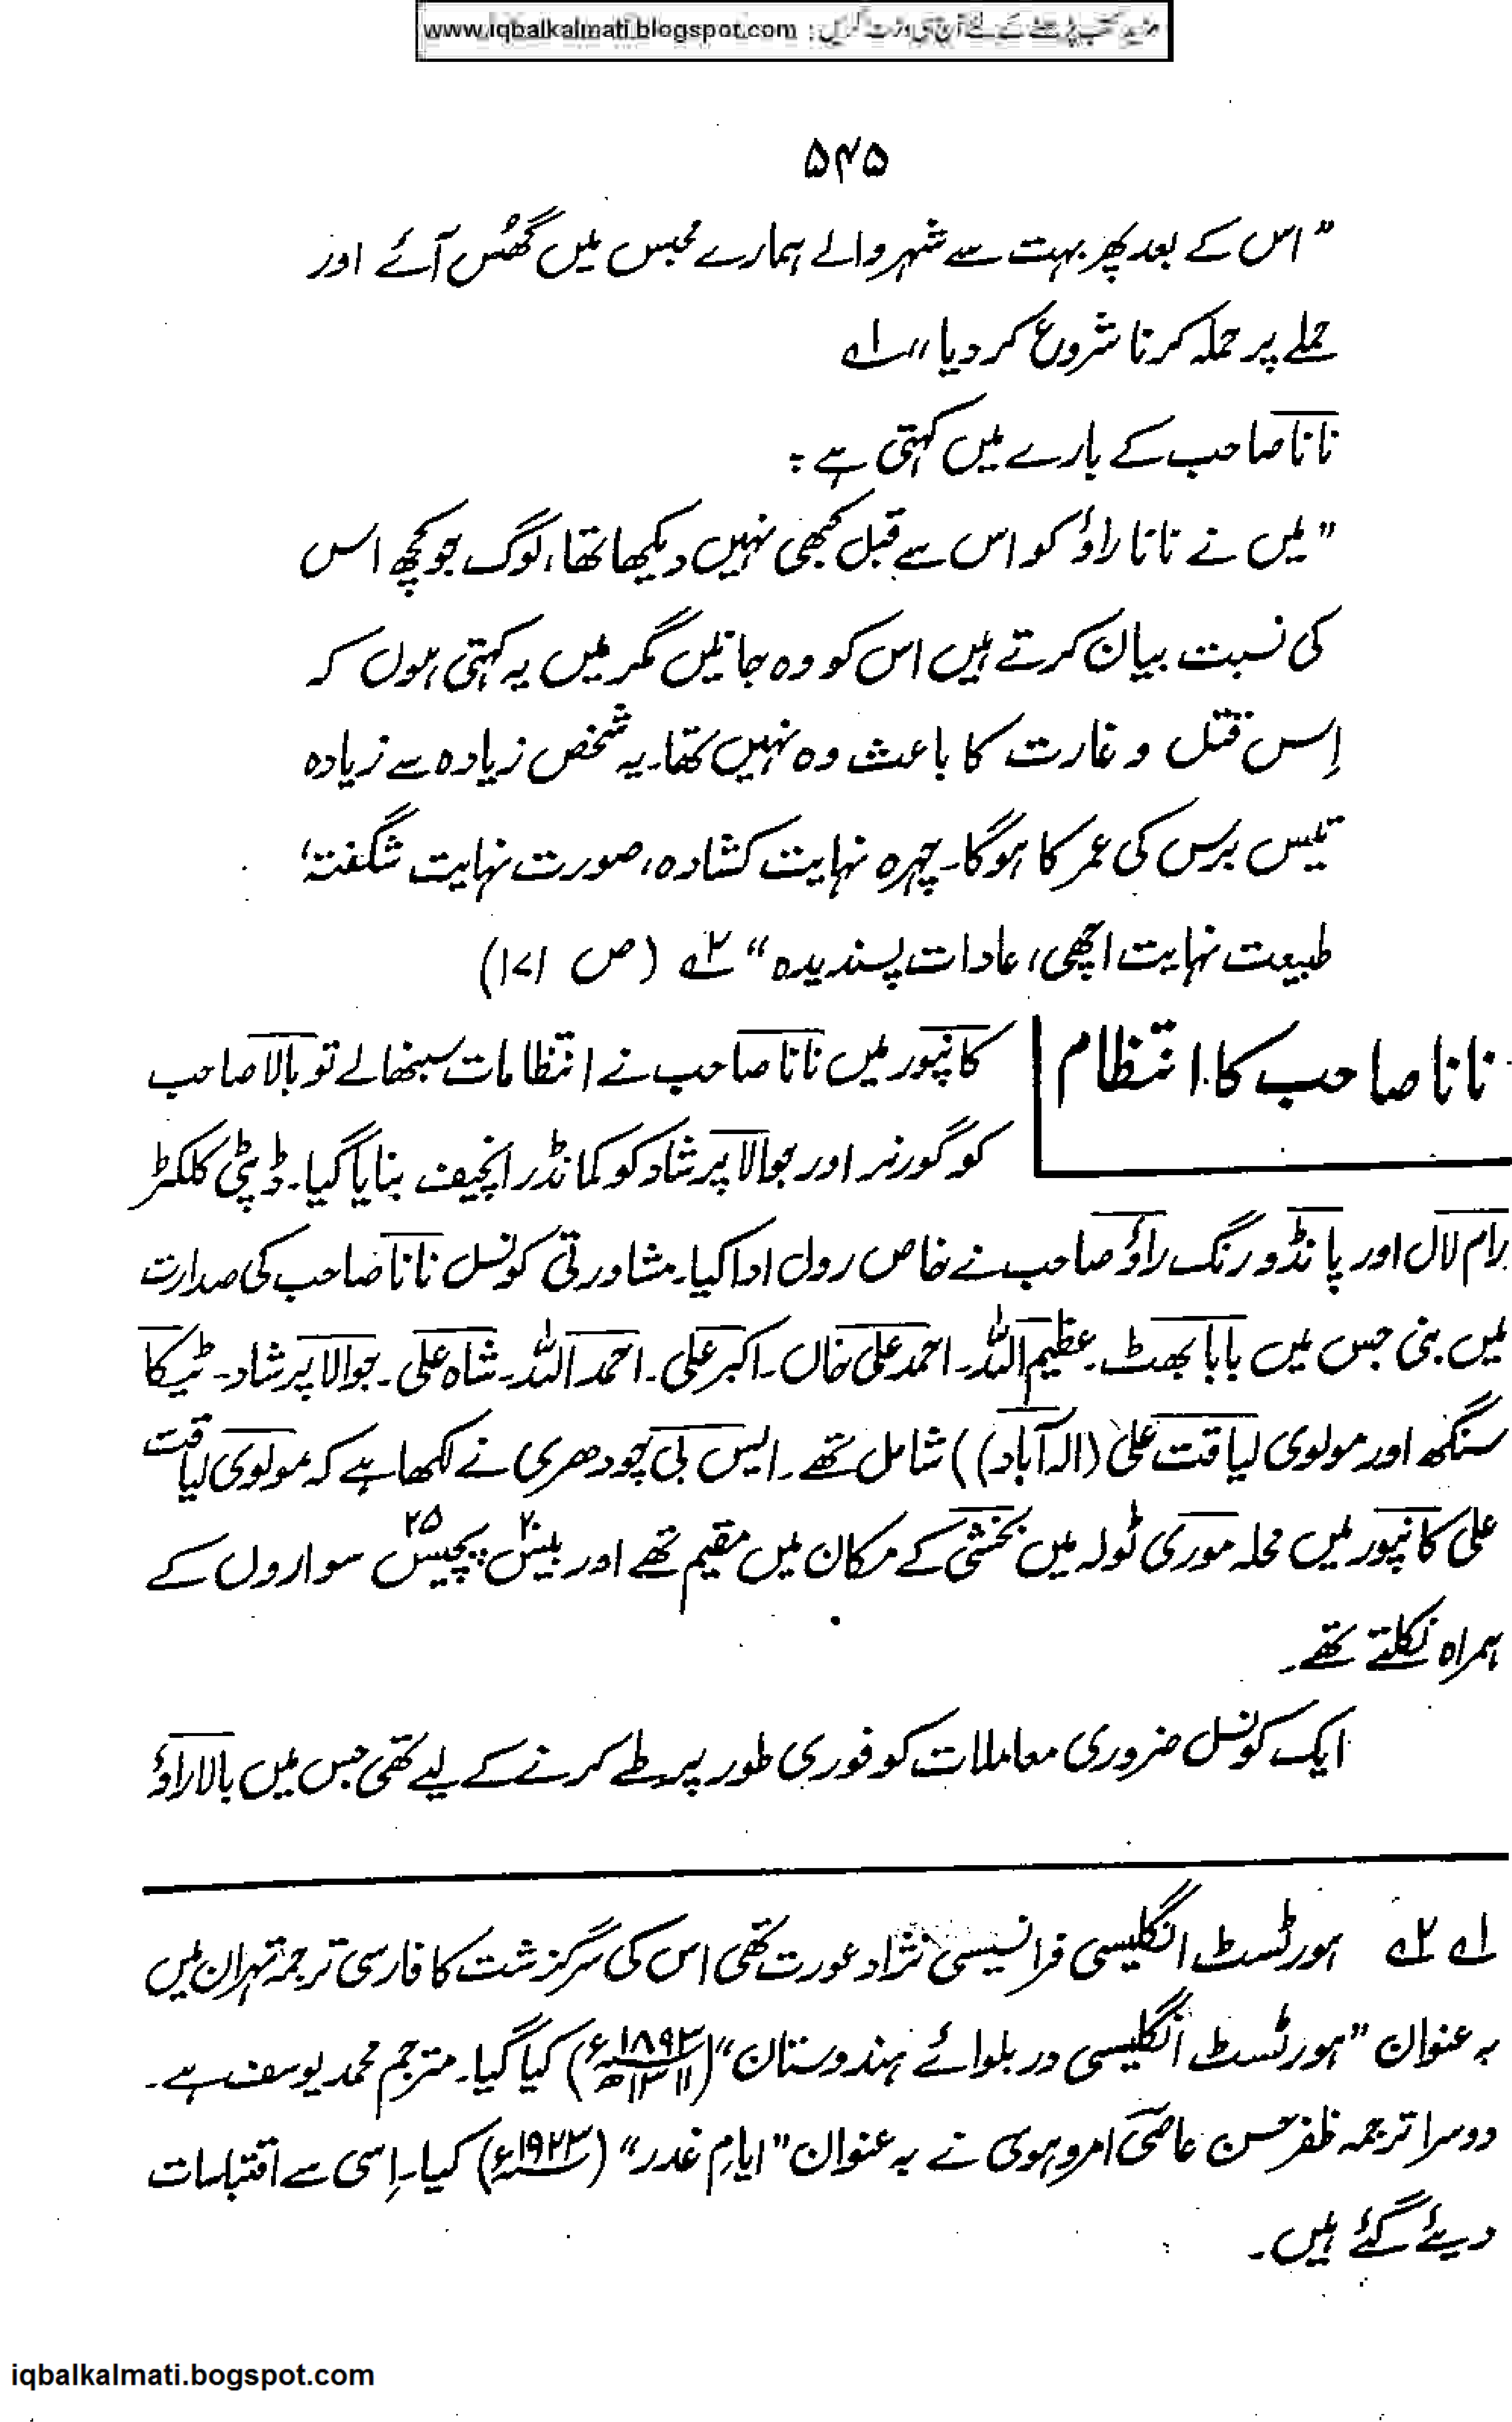 مزید کتب پڑھنے کے لئے آج ہی وزٹ کریں : www.iqbalkalmati.blogspot.com
۵۴۵
"اس کے بعد پھر بہت سے شہر والے ہمارے محبس میں گھُس آئے اور
حملے پر حملہ کرنا شروع کر دیا" ۱ے
نانا صاحب کے بارے میں کہتی ہے :
"میں نے نانا راؤ کو اس سے قبل کبھی نہیں دیکھا تھا، لوگ جو کچھ اس
کی نسبت بیان کرتے ہیں اس کو وہ جانیں مگر میں یہ کہتی ہوں کہ
اِس قتل و غارت کا باعث وہ نہیں تھا۔ یہ شخص زیادہ سے زیادہ
تیس برس کی عمر کا ہوگا۔ چہرہ نہایت کشادہ، صورت نہایت شگفتہ،
طبیعت نہایت اچھی، عادات پسندیدہ" ۲ے (ص ۱۷۱)
نانا صاحب کا انتظام
کانپور میں نانا صاحب نے انتظامات سنبھالے تو بالا صاحب
کو گورنر اور جوالا پرشاد کو کمانڈر انچیف بنایا گیا۔ ڈپٹی کلکٹر
رام لال اور پانڈو رنگ راؤ صاحب نے خاص رول ادا کیا۔ مشاورتی کونسل نانا صاحب کی صدارت
میں بنی جس میں بابا بھٹ۔ عظیم اللہ۔ احمد علی خاں۔ اکبر علی۔ احمد اللہ۔ شاہ علی۔ جوالا پرشاد۔ ٹیکا
سنگھ اور مولوی لیاقت علی (الہ آباد) ) شامل تھے۔ ایس بی چودھری نے لکھا ہے کہ مولوی لیاقت
علی کانپور میں محلہ موری ٹولہ میں بخشی کے مکان میں مقیم تھے اور بیس۲۰ پچیس۲۵ سواروں کے
ہمراہ نکلتے تھے۔
ایک کونسل ضروری معاملات کو فوری طور پر طے کرنے کے لیے تھی جس میں بالا راؤ
۱ے ۲ے ہورٹسٹ انگلیسی فرانسیسی نژاد عورت تھی اس کی سرگزشت کا فارسی ترجمہ تہران میں
بہ عنوان "ہورٹسٹ انگلیسی در بلوائے ہندوستان" (۱۸۹۳ء ۱۳۱۱ھ) کیا گیا۔ مترجم محمد یوسف ہے۔
دوسرا ترجمہ ظفر حسن عاصی امروہوی نے بہ عنوان "ایامِ غدر" (۱۹۲۳ء) کیا۔ اِسی سے اقتباسات
دیئے گئے ہیں۔
iqbalkalmati.bogspot.com